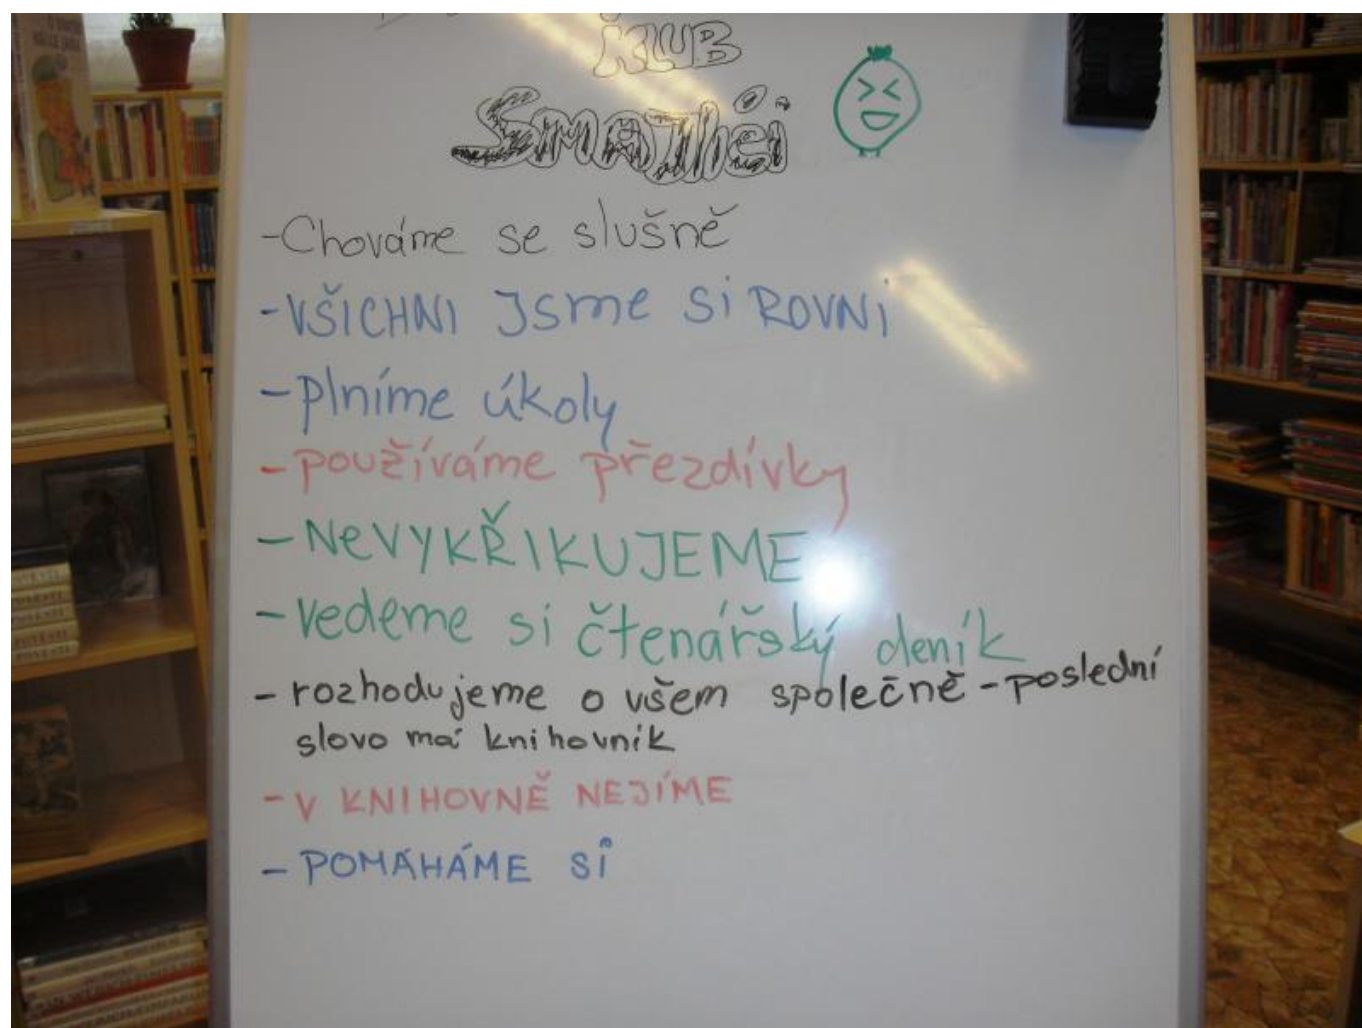 KLUB
- Chováme se slušně
- VŠICHNI JSme Si ROVNi
- plníme úkoly
- používáme přezdívky
- NeVYKŘIKUJEME
- Vedeme si čtenářský deník
- rozhodujeme o všem společně - poslední
slovo má knihovník
- V KNIHOVNĚ NEJÍME
- POMÁHÁME Si